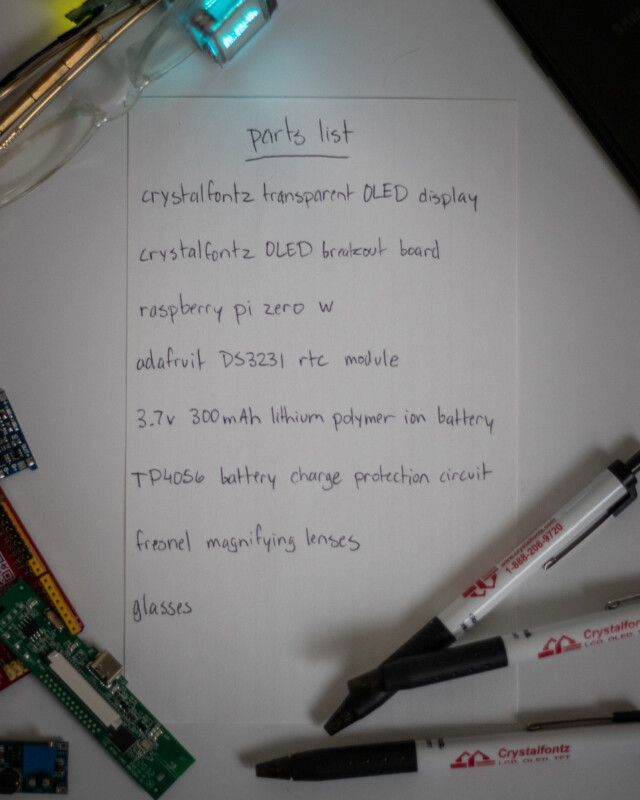 parts list
crystalfontz transparent OLED display
crystalfontz OLED breakout board
raspberry pi zero w
adafruit DS3231 rtc module
3.7v 300mAh lithium polymer ion battery
TP4056 battery charge protection circuit
fresnel magnifying lenses
glasses
1-888-206-9720
Crystalfont
LCD, OLED, TFT
Crystalfontz
LCD, OLED, TFT